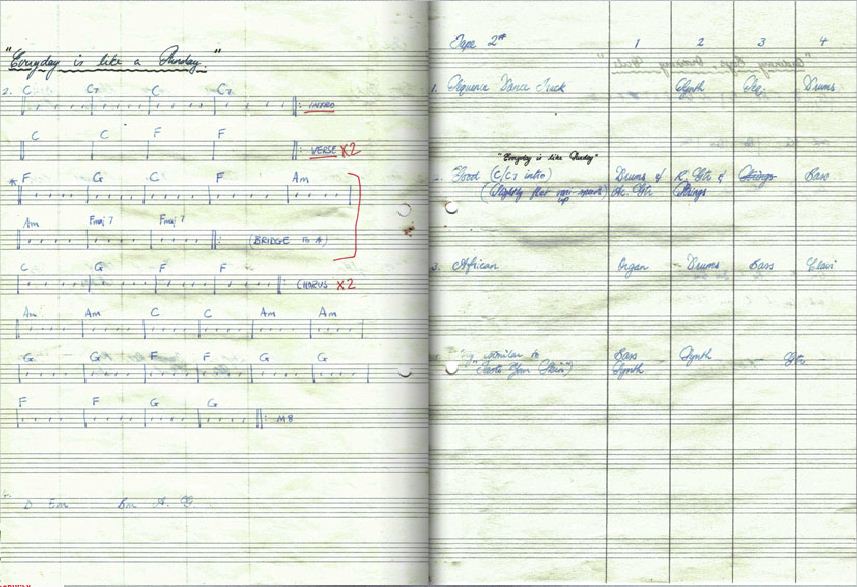 "Everyday is like a Sunday."
2. C C7 C C7
INTRO
C C F F
VERSE X2
* F G C F Am
Am Fmaj7 Fmaj7
(BRIDGE TO A)
C G F F
CHORUS X2
Am Am C C Am Am
G G F F G G
F F G G
M8
D Em Bm A G
Tape 2 1 2 3 4
1. Sequence Dance Track Synth Seq. Drums
"Everyday is like Sunday"
2. Flood (C/C7 intro) Drums & R. Gtr & Strings Bass
(Slightly flat up) Ac Gtr Strings
3. African Organ Drums Bass Clavi
similar to Bass Synth — Gtr —
Synth